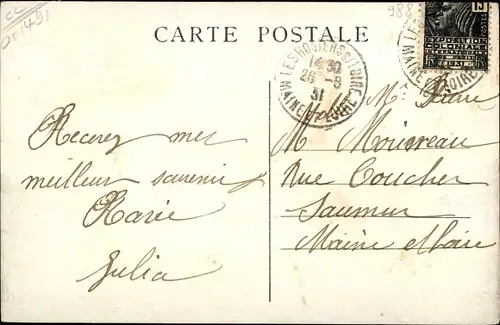 CC
DS1491
988
CARTE POSTALE
LES ROSIERS S/LOIRE
14 30
26 - 8
31
MAINE ET LOIRE
15
POSTES
EXPOSITION
COLONIALE
INTERNATIONALE
PARIS
1931
MAINE ET LOIRE
Recevez mes
meilleurs souvenirs
Julia
Mr
M Mousseau
Rue Coucher
Saumur
Maine et Loire